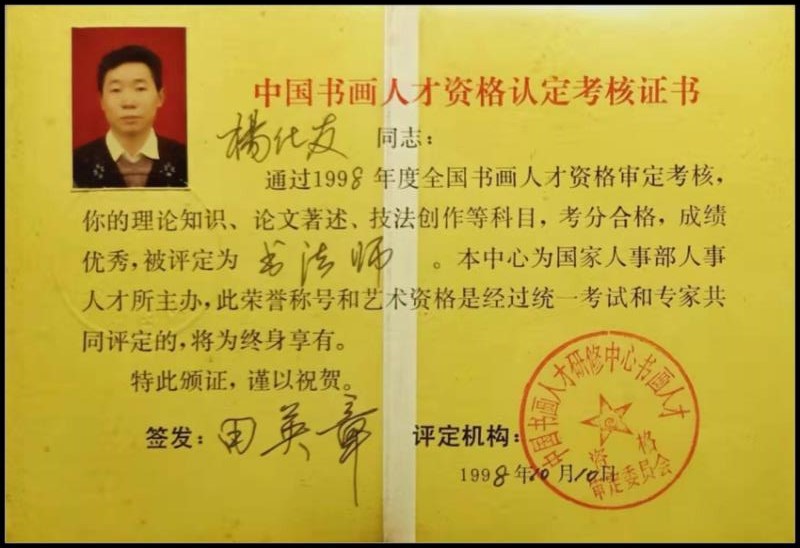 中国书画人才资格认定考核证书
楊仕友 同志：
通过1998年度全国书画人才资格审定考核，
你的理论知识、论文著述、技法创作等科目，考分合格，成绩
优秀，被评定为 书法师 。本中心为国家人事部人事
人才所主办，此荣誉称号和艺术资格是经过统一考试和专家共
同评定的，将为终身享有。
特此颁证，谨以祝贺。
签发：田英章 评定机构：
1998年10月10日
中国书画人才研修中心书画人才
资格
审定委员会